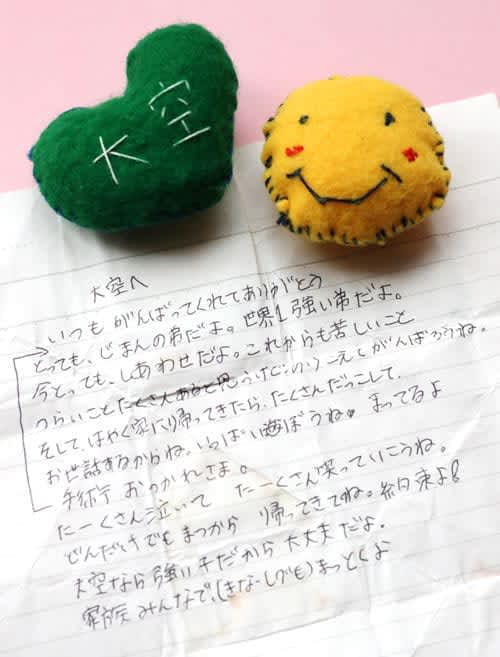 大空
大空へ
いつも がんばってくれてありがとう
とっても、じまんの弟だよ。世界1強い弟だよ。
今とっても、しあわせだよ。これからも苦しいこと
つらいことたくさんあると思うけどのりこえてがんばろうね。
そして、はやく家に帰ってきたら、たくさんだっこして、
お世話するからね。いっぱい遊ぼうね。まってるよ
手術 おつかれさま。
たーくさん泣いて たーくさん笑っていこうね。
どんだけでもまつから 帰ってきてね。約束よ!
大空なら強い子だから大丈夫だよ。
家族みんなで、まっとくよ